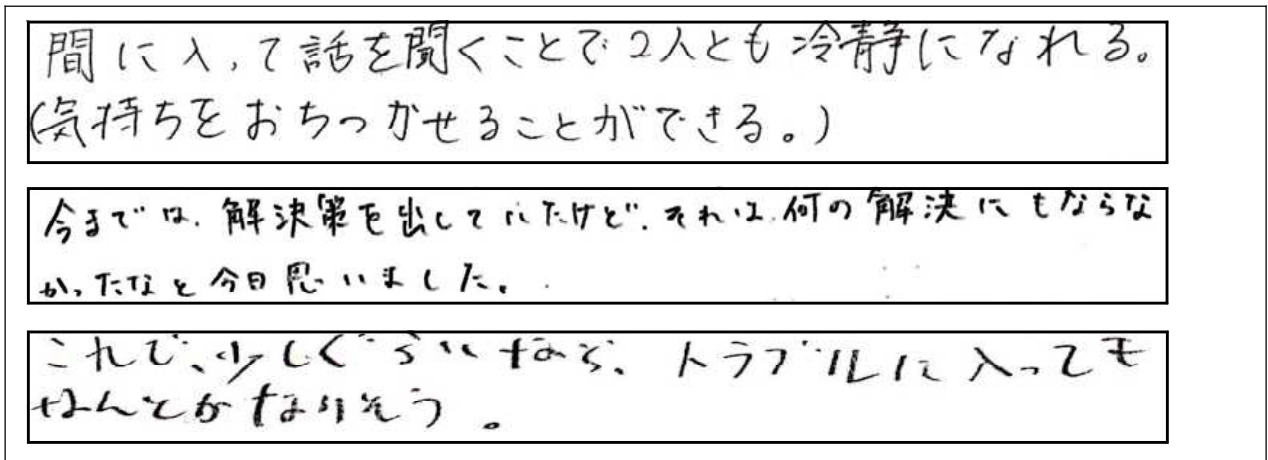 間に入って話を聞くことで2人とも冷静になれる。
(気持ちをおちつかせることができる。)
今までは、解決策を出していたけど、それは、何の解決にもならな
かったなと今日思いました。
これで、少しぐらいなら、トラブルに入っても
なんとかなりそう。